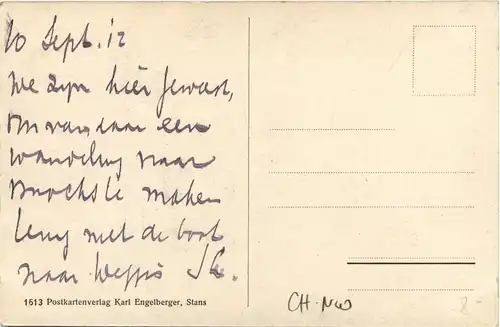 10 Sept. 12
We zijn hier geweest,
om van daar een
wandeling naar
maken
terug met de boot
naar Weggis
1613 Postkartenverlag Karl Engelberger, Stans
CH-NW
8-